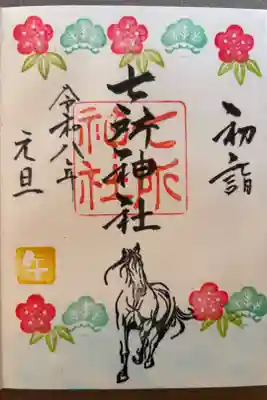 初詣
七所神社
七所神社
令和八年
元旦
午